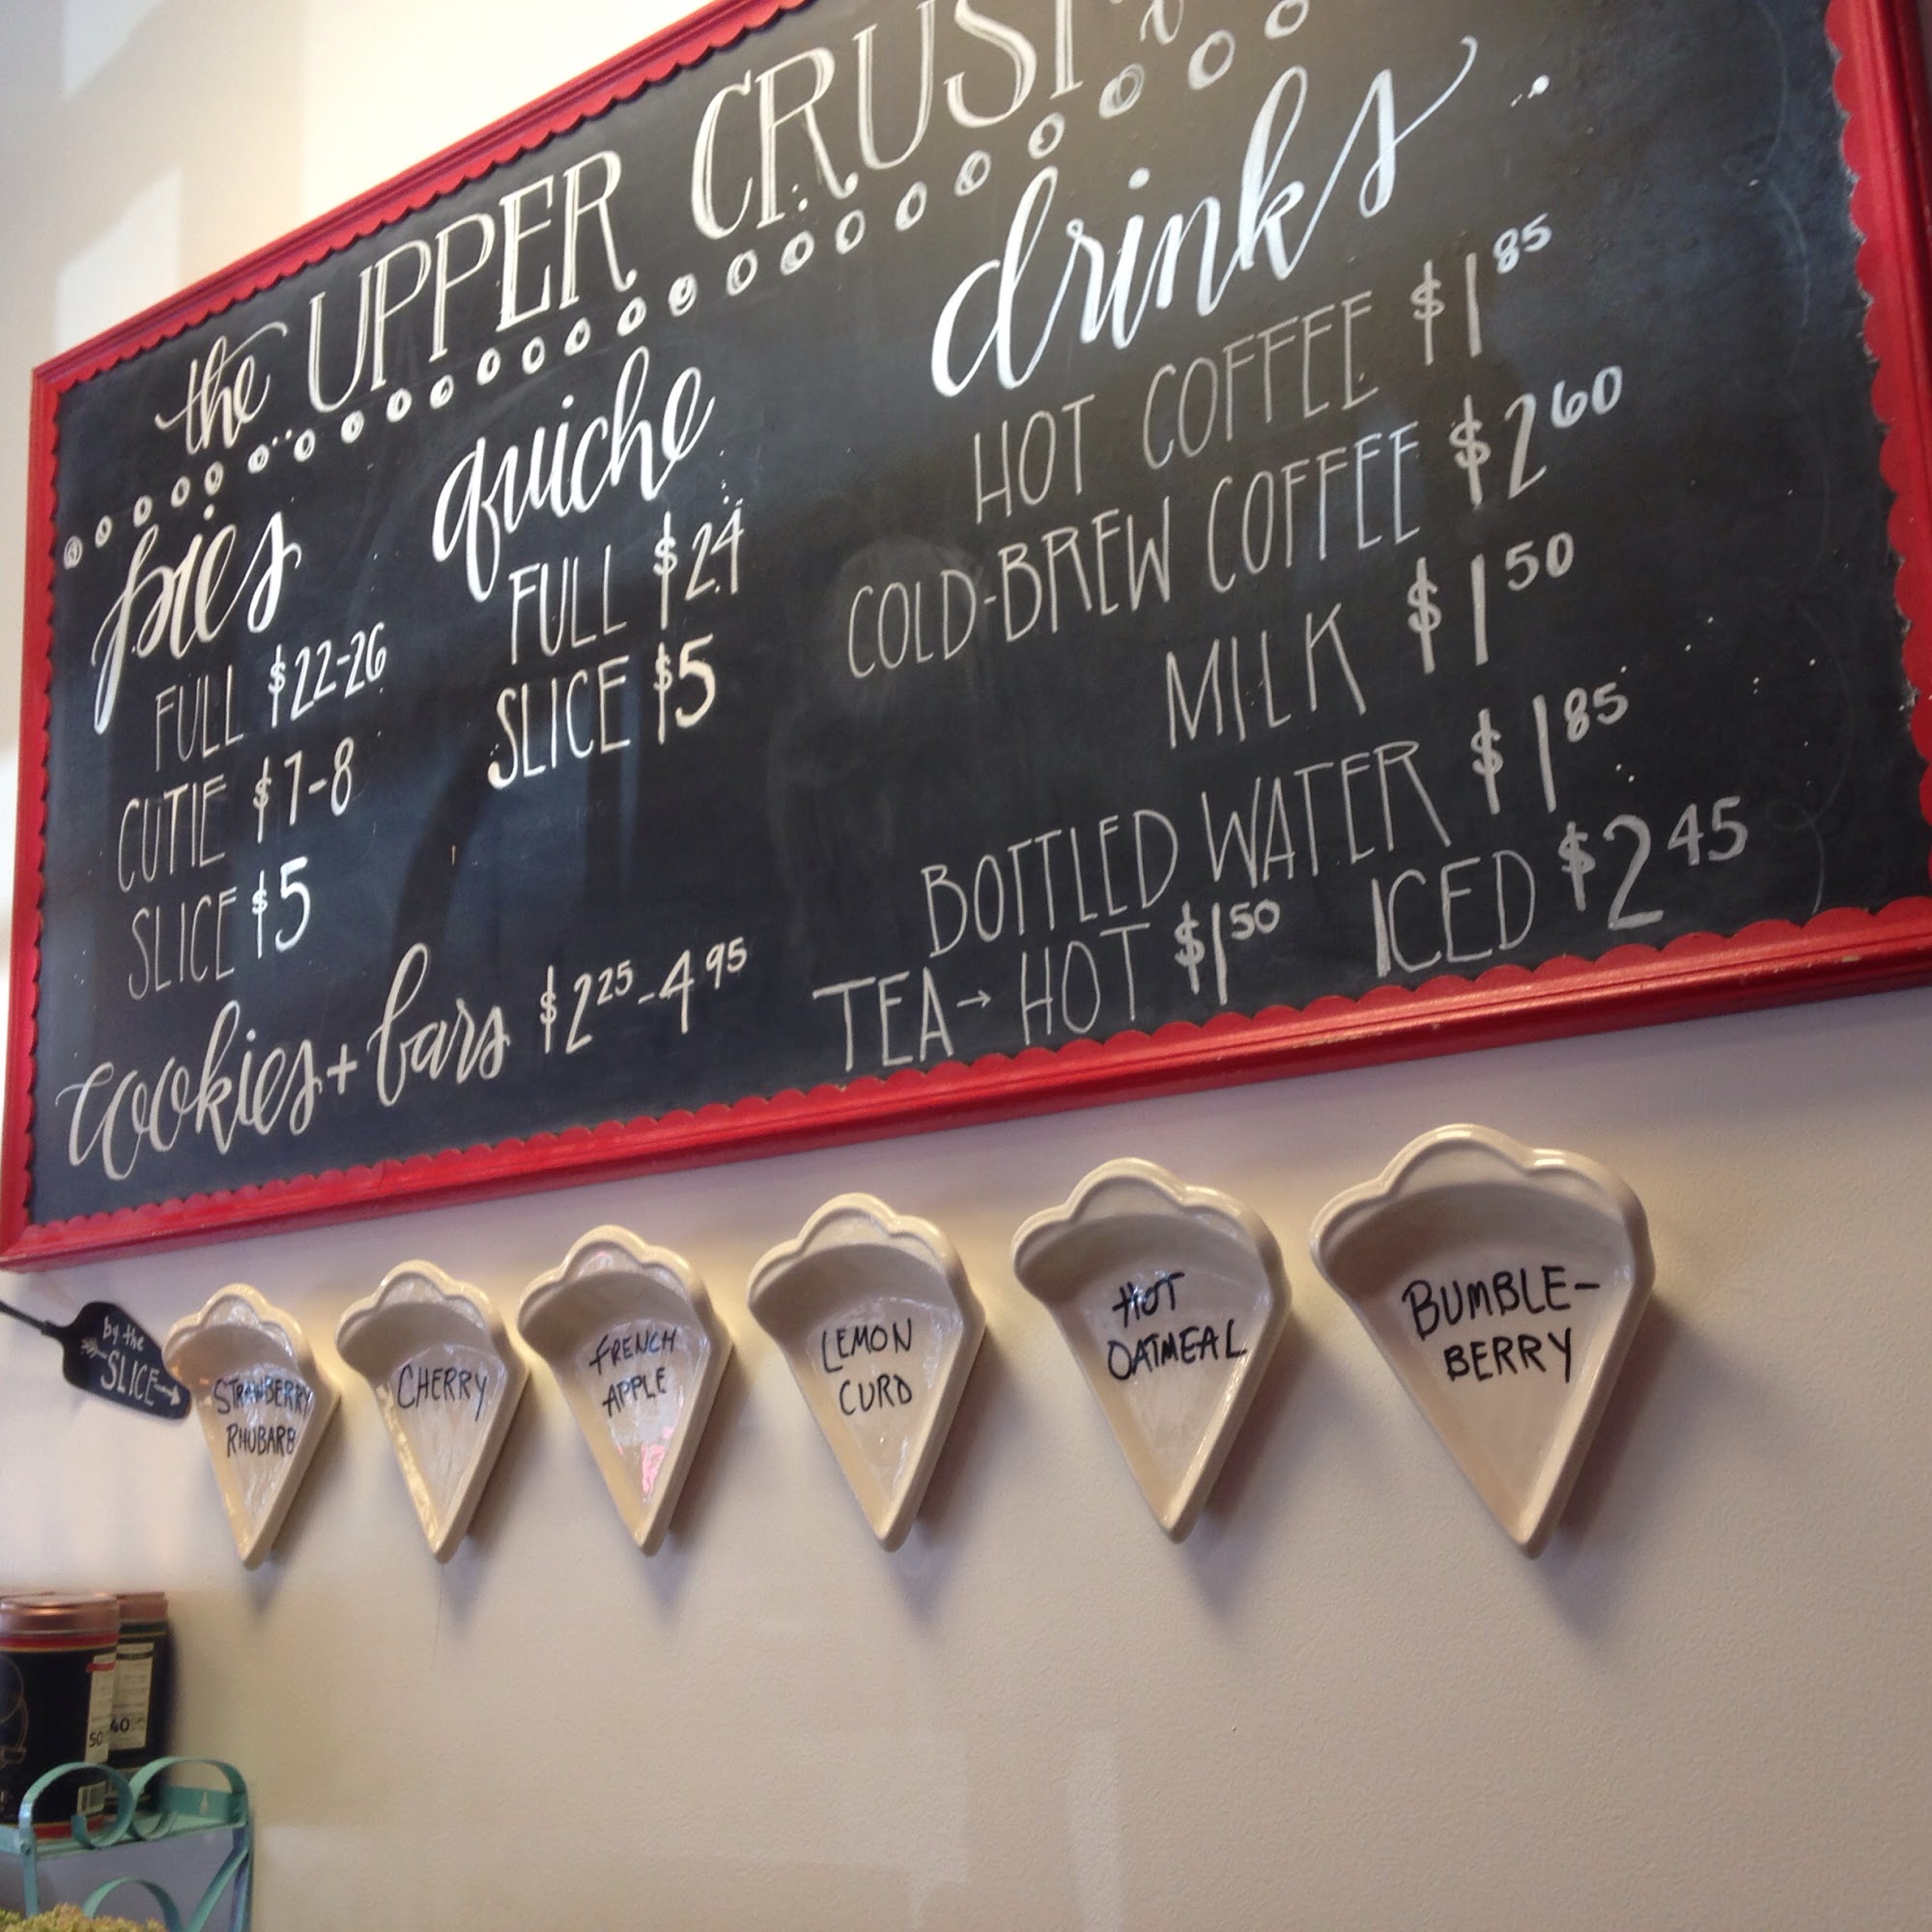 the UPPER CRUST
pies
FULL $22-26
CUTIE $7-8
SLICE $5
quiche
FULL $24
SLICE $5
cookies + bars $2 25 - 4 95
drinks
HOT COFFEE $1 85
COLD-BREW COFFEE $2 60
MILK $1 50
BOTTLED WATER $1 85
TEA → HOT $1 50 ICED $2 45
by the
SLICE →
STRAWBERRY
RHUBARB
CHERRY
FRENCH
APPLE
LEMON
CURD
HOT
OATMEAL
BUMBLE-
BERRY
50
40